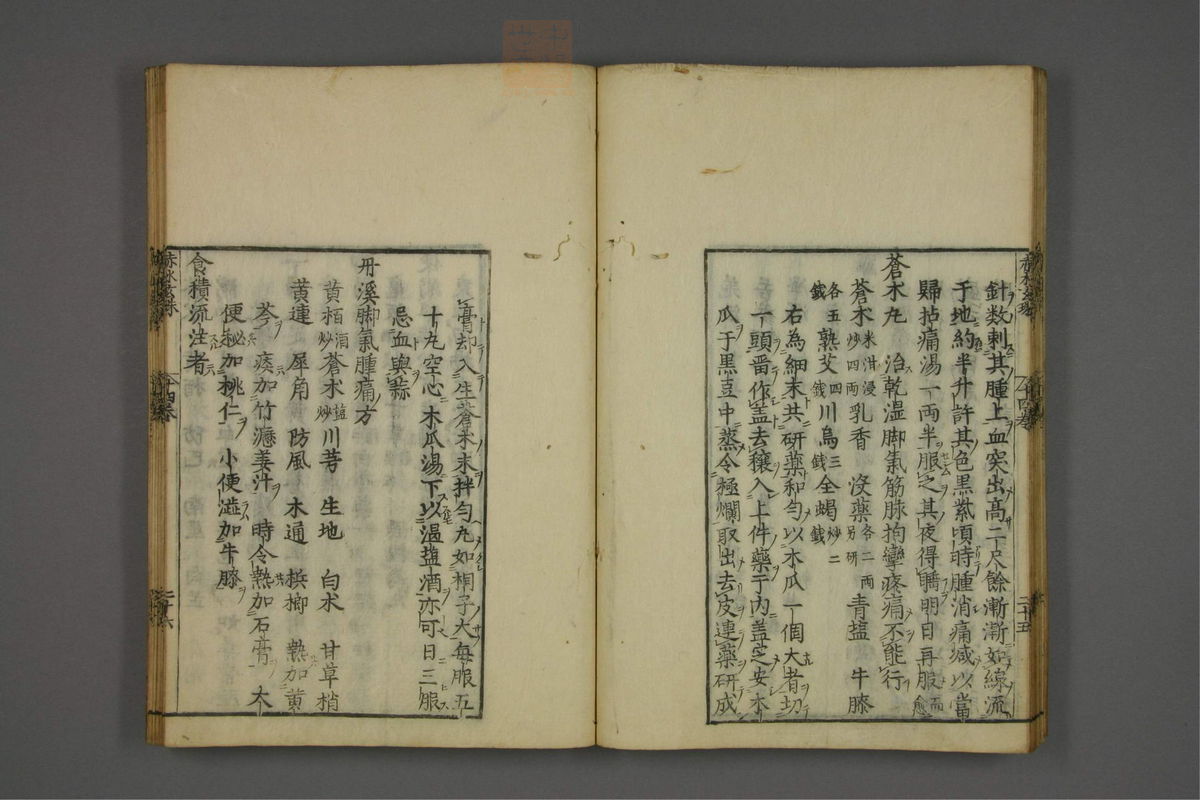 針數刺其腫上血突出高二尺餘漸漸如線流
于地約半升許其色黑紫頃時腫消痛减以當
歸拈痛湯一兩半服之其夜得睡明日再服而愈
蒼朮丸　治乾濕脚氣筋脉拘攣疼痛不能行
蒼朮米泔浸炒四兩乳香　沒藥各二兩另研青塩　牛膝
各五錢熟艾四錢川烏三錢全蝎炒二錢
右為細末共研藥和勻以木瓜一個大者切
一頭留作盖去穰入上件藥于內盖定安木
瓜于黑豆中蒸令極爛取出去皮連藥研成
二十五
膏却入生蒼朮末拌勻丸如桐子大每服五
十丸空心木瓜湯下以温塩酒亦可日三服
忌血與蒜
丹溪脚氣腫痛方
黃栢酒炒蒼朮塩炒川芎　生地　白朮　甘草梢
黃連　犀角　防風　木通　檳榔　熱加黃
芩　痰加竹瀝姜汁　時令熱加石膏　大
便秘加桃仁　小便澁加牛膝
食積流注者
二十六